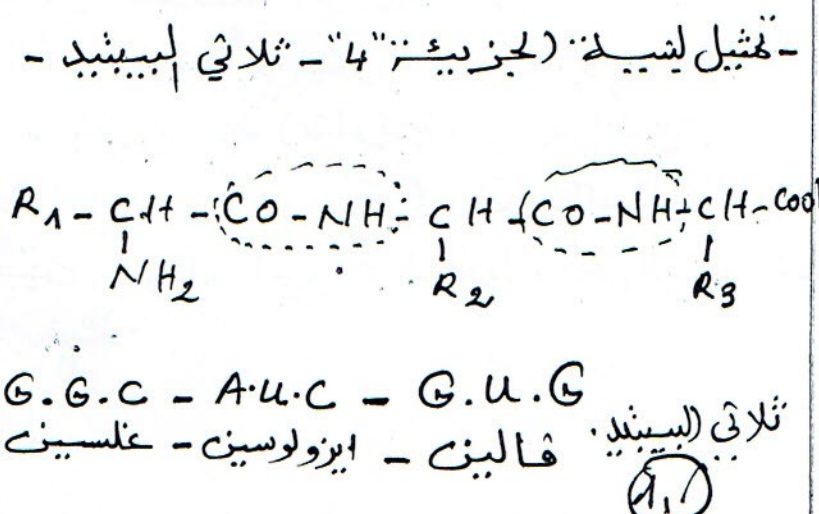 - تمثيل لبنية الجزيئة "4" - ثلاثي الببتيد -
R1 - CH - CO - NH - CH - CO - NH - CH - COO
NH2 R2 R3
G.G.C - A.U.C - G.U.G
ثلاثي الببتيد. ڤالين - ايزولوسين - غلسين